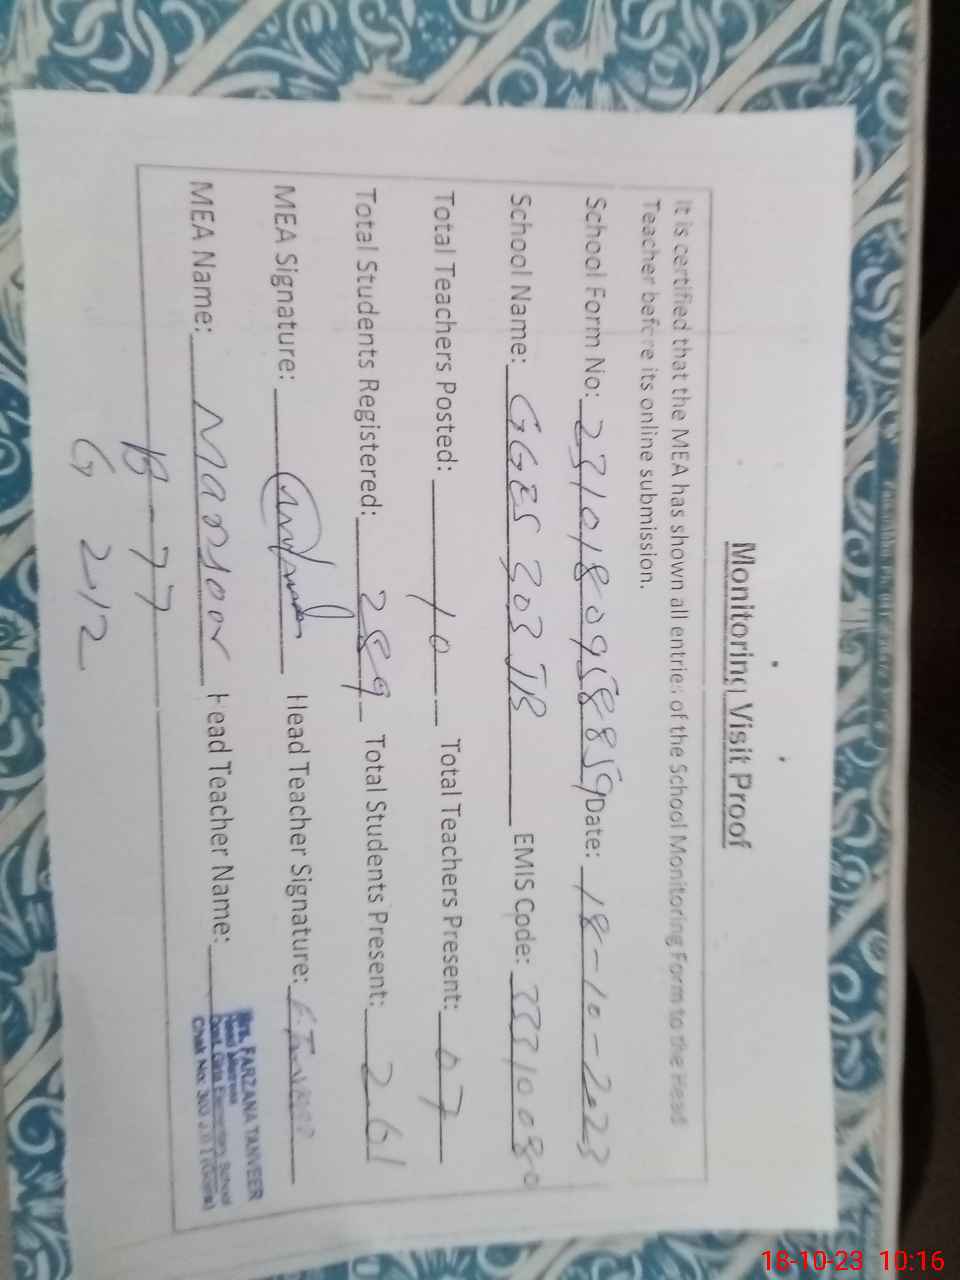 Monitoring Visit Proof
It is certified that the MEA has shown all entries of the School Monitoring Form to the Head
Teacher before its online submission.
School Form No: 2310180958859 Date: 18-10-2023
School Name: GGES 303 JB EMIS Code: 33310080
Total Teachers Posted: 10 Total Teachers Present: 07
Total Students Registered: 289 Total Students Present: 261
MEA Signature: Head Teacher Signature: F. Tanveer
MEA Name: Mansoor Head Teacher Name:
Mrs. FARZANA TANVEER
Head Mistress
Govt. Girls Elementary School
Chak No: 303 J.B T (Gojra)
B-77
G 212
18-10-23 10:16